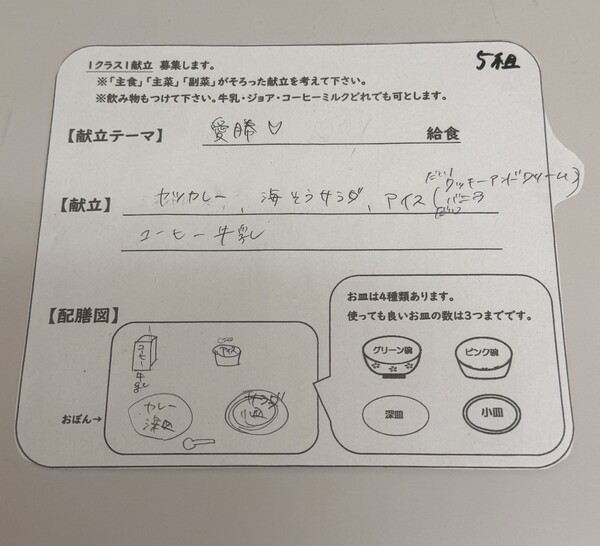 1クラス1献立 募集します。
5組
※「主食」「主菜」「副菜」がそろった献立を考えて下さい。
※飲み物もつけて下さい。牛乳・ジョア・コーヒーミルクどれでも可とします。
【献立テーマ】 愛勝♡ 給食
【献立】 カツカレー、海そうサラダ、アイス(クッキーアンドクリーム)
バニラ
コーヒー牛乳
【配膳図】
お皿は4種類あります。
使っても良いお皿の数は3つまでです。
コーヒー牛乳
アイス
グリーン碗
ピンク碗
おぼん→
カレー
深皿
サラダ
小皿
深皿
小皿